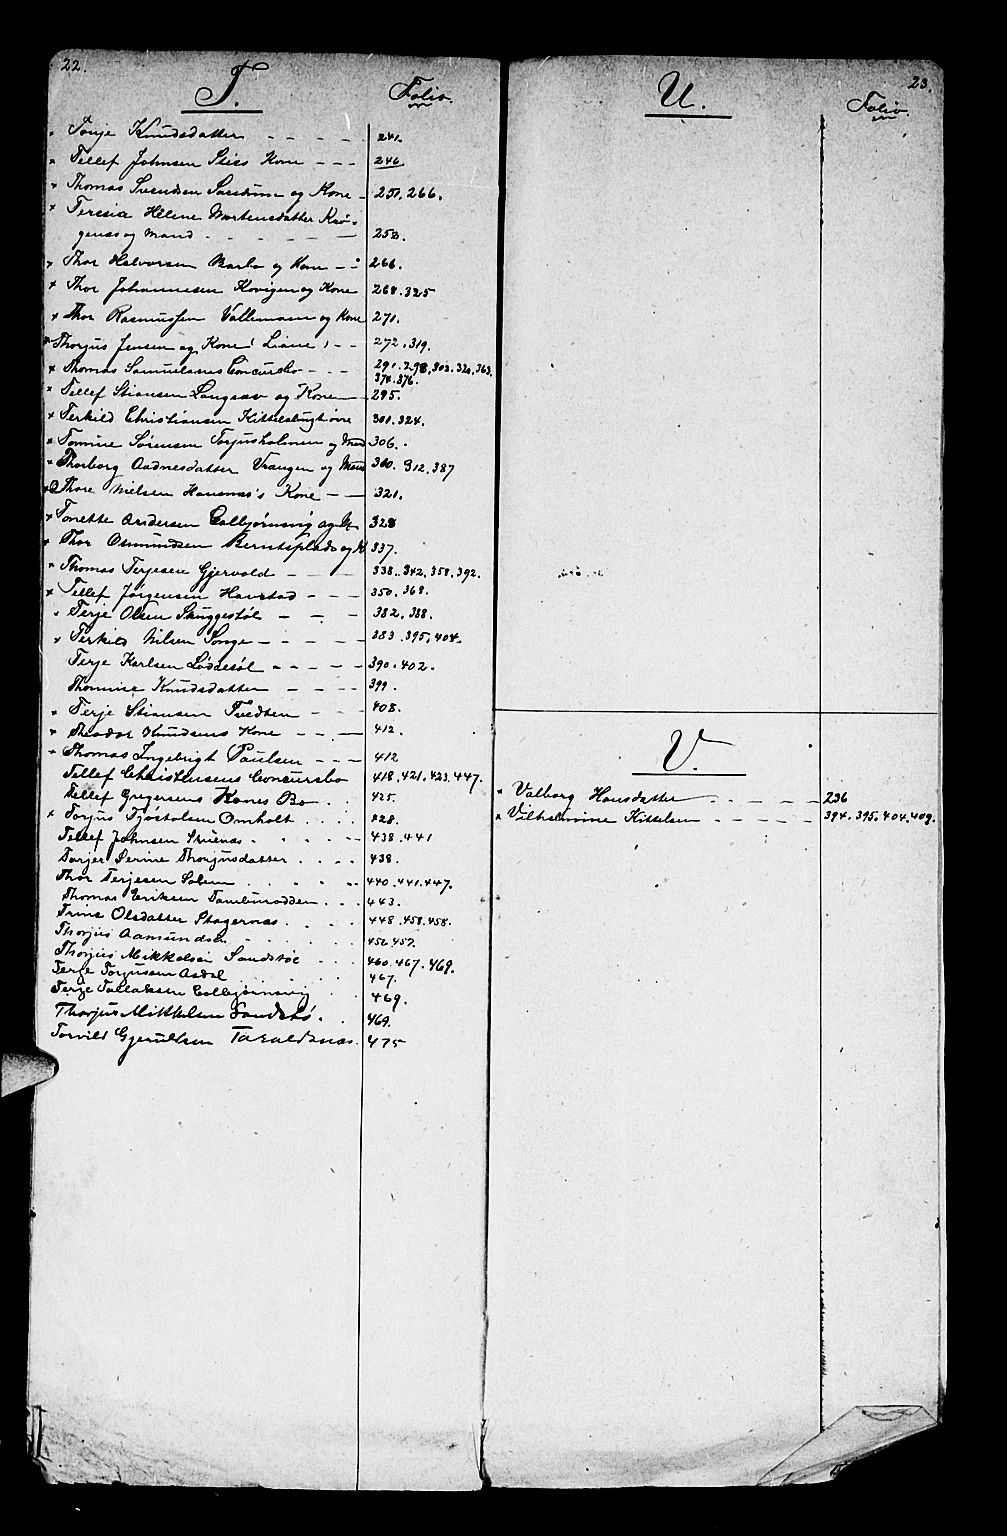 22.
T.
Folio.
Tonje Knudsdatter 241.
Tellef Johnsen Kone 246
Thomas Svendsen og Kone 251. 266.
Teresia Helene Mortensdatter Krø-
genæs og Mand 253.
Thor Halvorsen Barbo og Kone 266.
Thor Johannesen og Kone 268. 325
Thor Rasmussen Vallemoen og Kone 271.
Thorjus Jensen og Kone (Liane) 272. 319.
Thomas Samuelsens Concursbo 291. 298. 303. 320. 363.
374. 376.
Tellef Stiansen Langsæv og Kone 295.
Terkild Christiansen Kittelsbugt 301. 324.
Tomine Sørensen Torjusholmen og Mand 306.
Thorborg Aadnesdatter Vrangen og Mand 310. 312. 387
Thore Nielsen Hausnæs's Kone 321.
Tonette Andersen Colbjørnsvig og M. 328
Thor Osmundsen Berntsplads og K 337.
Thomas Terjesen Gjervold 338. 342. 358. 392.
Tellef Jørgensen Havstad 350. 368.
Terje Olsen Skuggestøl 382. 388.
Terkild Nilsen Songe 383. 395. 404.
Terje Karlsen Løddesøl 390. 402.
Thomine Knudsdatter 399.
Terje Stiansen Tvedten 408.
Theodor Knudsens Kone 412.
Thomas Ingebrigt Paulsen 412
Tellef Christensens Concursbo 418. 421. 423. 447.
Tellef Gregersens Kones Bo 425.
Torjus Tjøstolsen Omholt 428.
Tellef Johnsen Struenæs 438. 441
Torjer Serine Thorjusdatter 438.
Thor Terjesen Solem 440. 441. 447.
Thomas Eriksen Tamburodden 443.
Trine Olsdatter Skagernæs 448. 458. 458.
Thorjus Aamundsen 452. 457.
Thorjus Mikkelsen Sandstøe 460. 467. 469.
Terje Torjusen Asdal 467.
Terje Tallaksen Colbjørnsvig 469.
Thorjus Mikkelsen Sandstø. 469.
Torvild Gjerulfsen Taraldsnæs. 475
23.
U.
Folio.
V.
Valborg Hansdatter 236
Vilhelmine Kittelsen 394. 395. 404. 409.